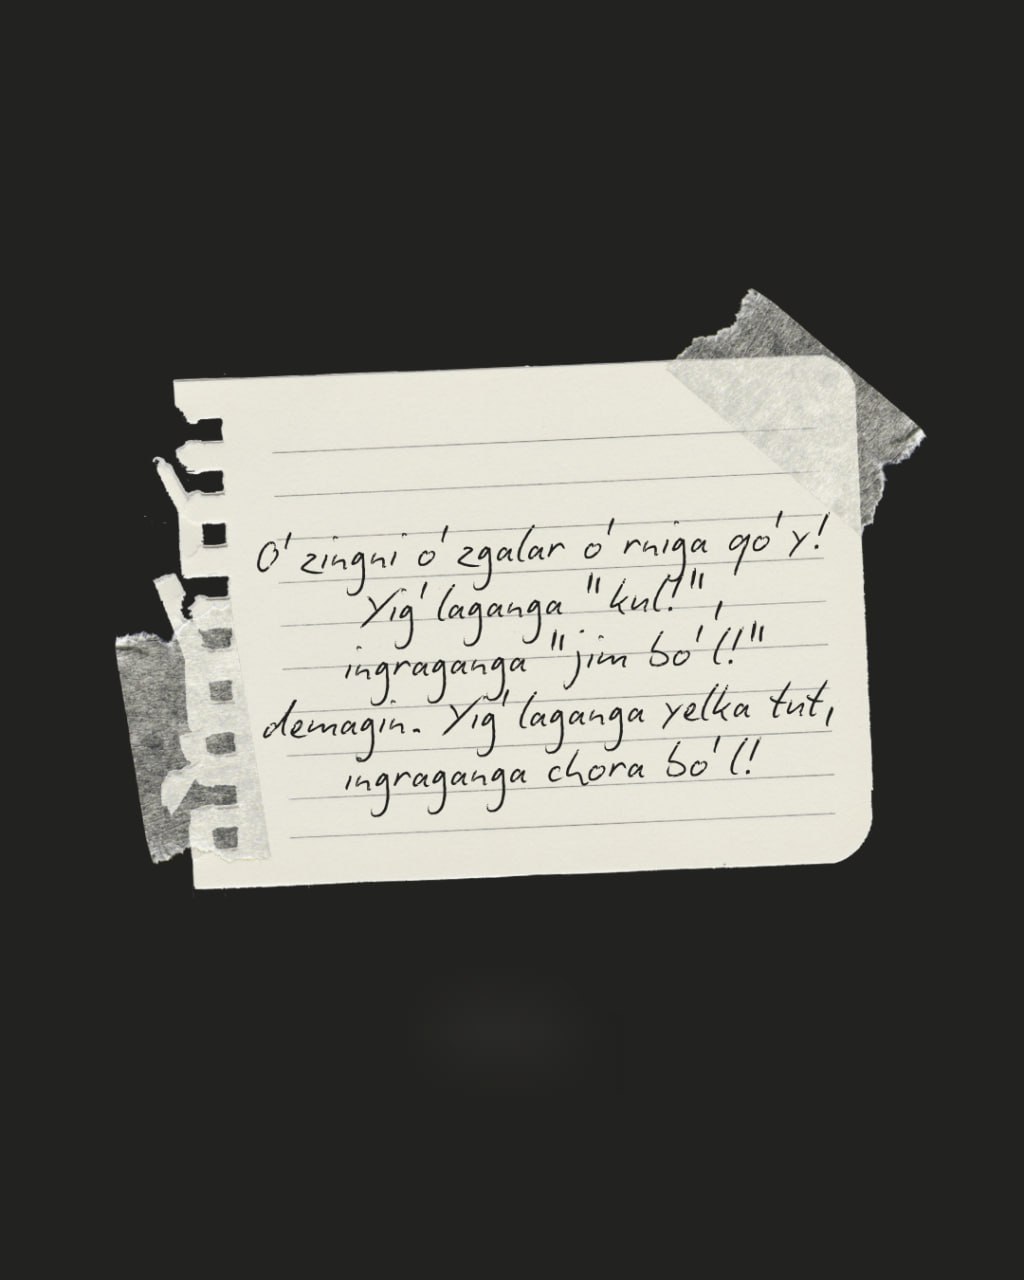 O'zingni o'zgalar o'rniga qo'y!
Yig'laganga "kul!",
ingraganga "jim bo'l!"
demagin. Yig'laganga yelka tut,
ingraganga chora bo'l!